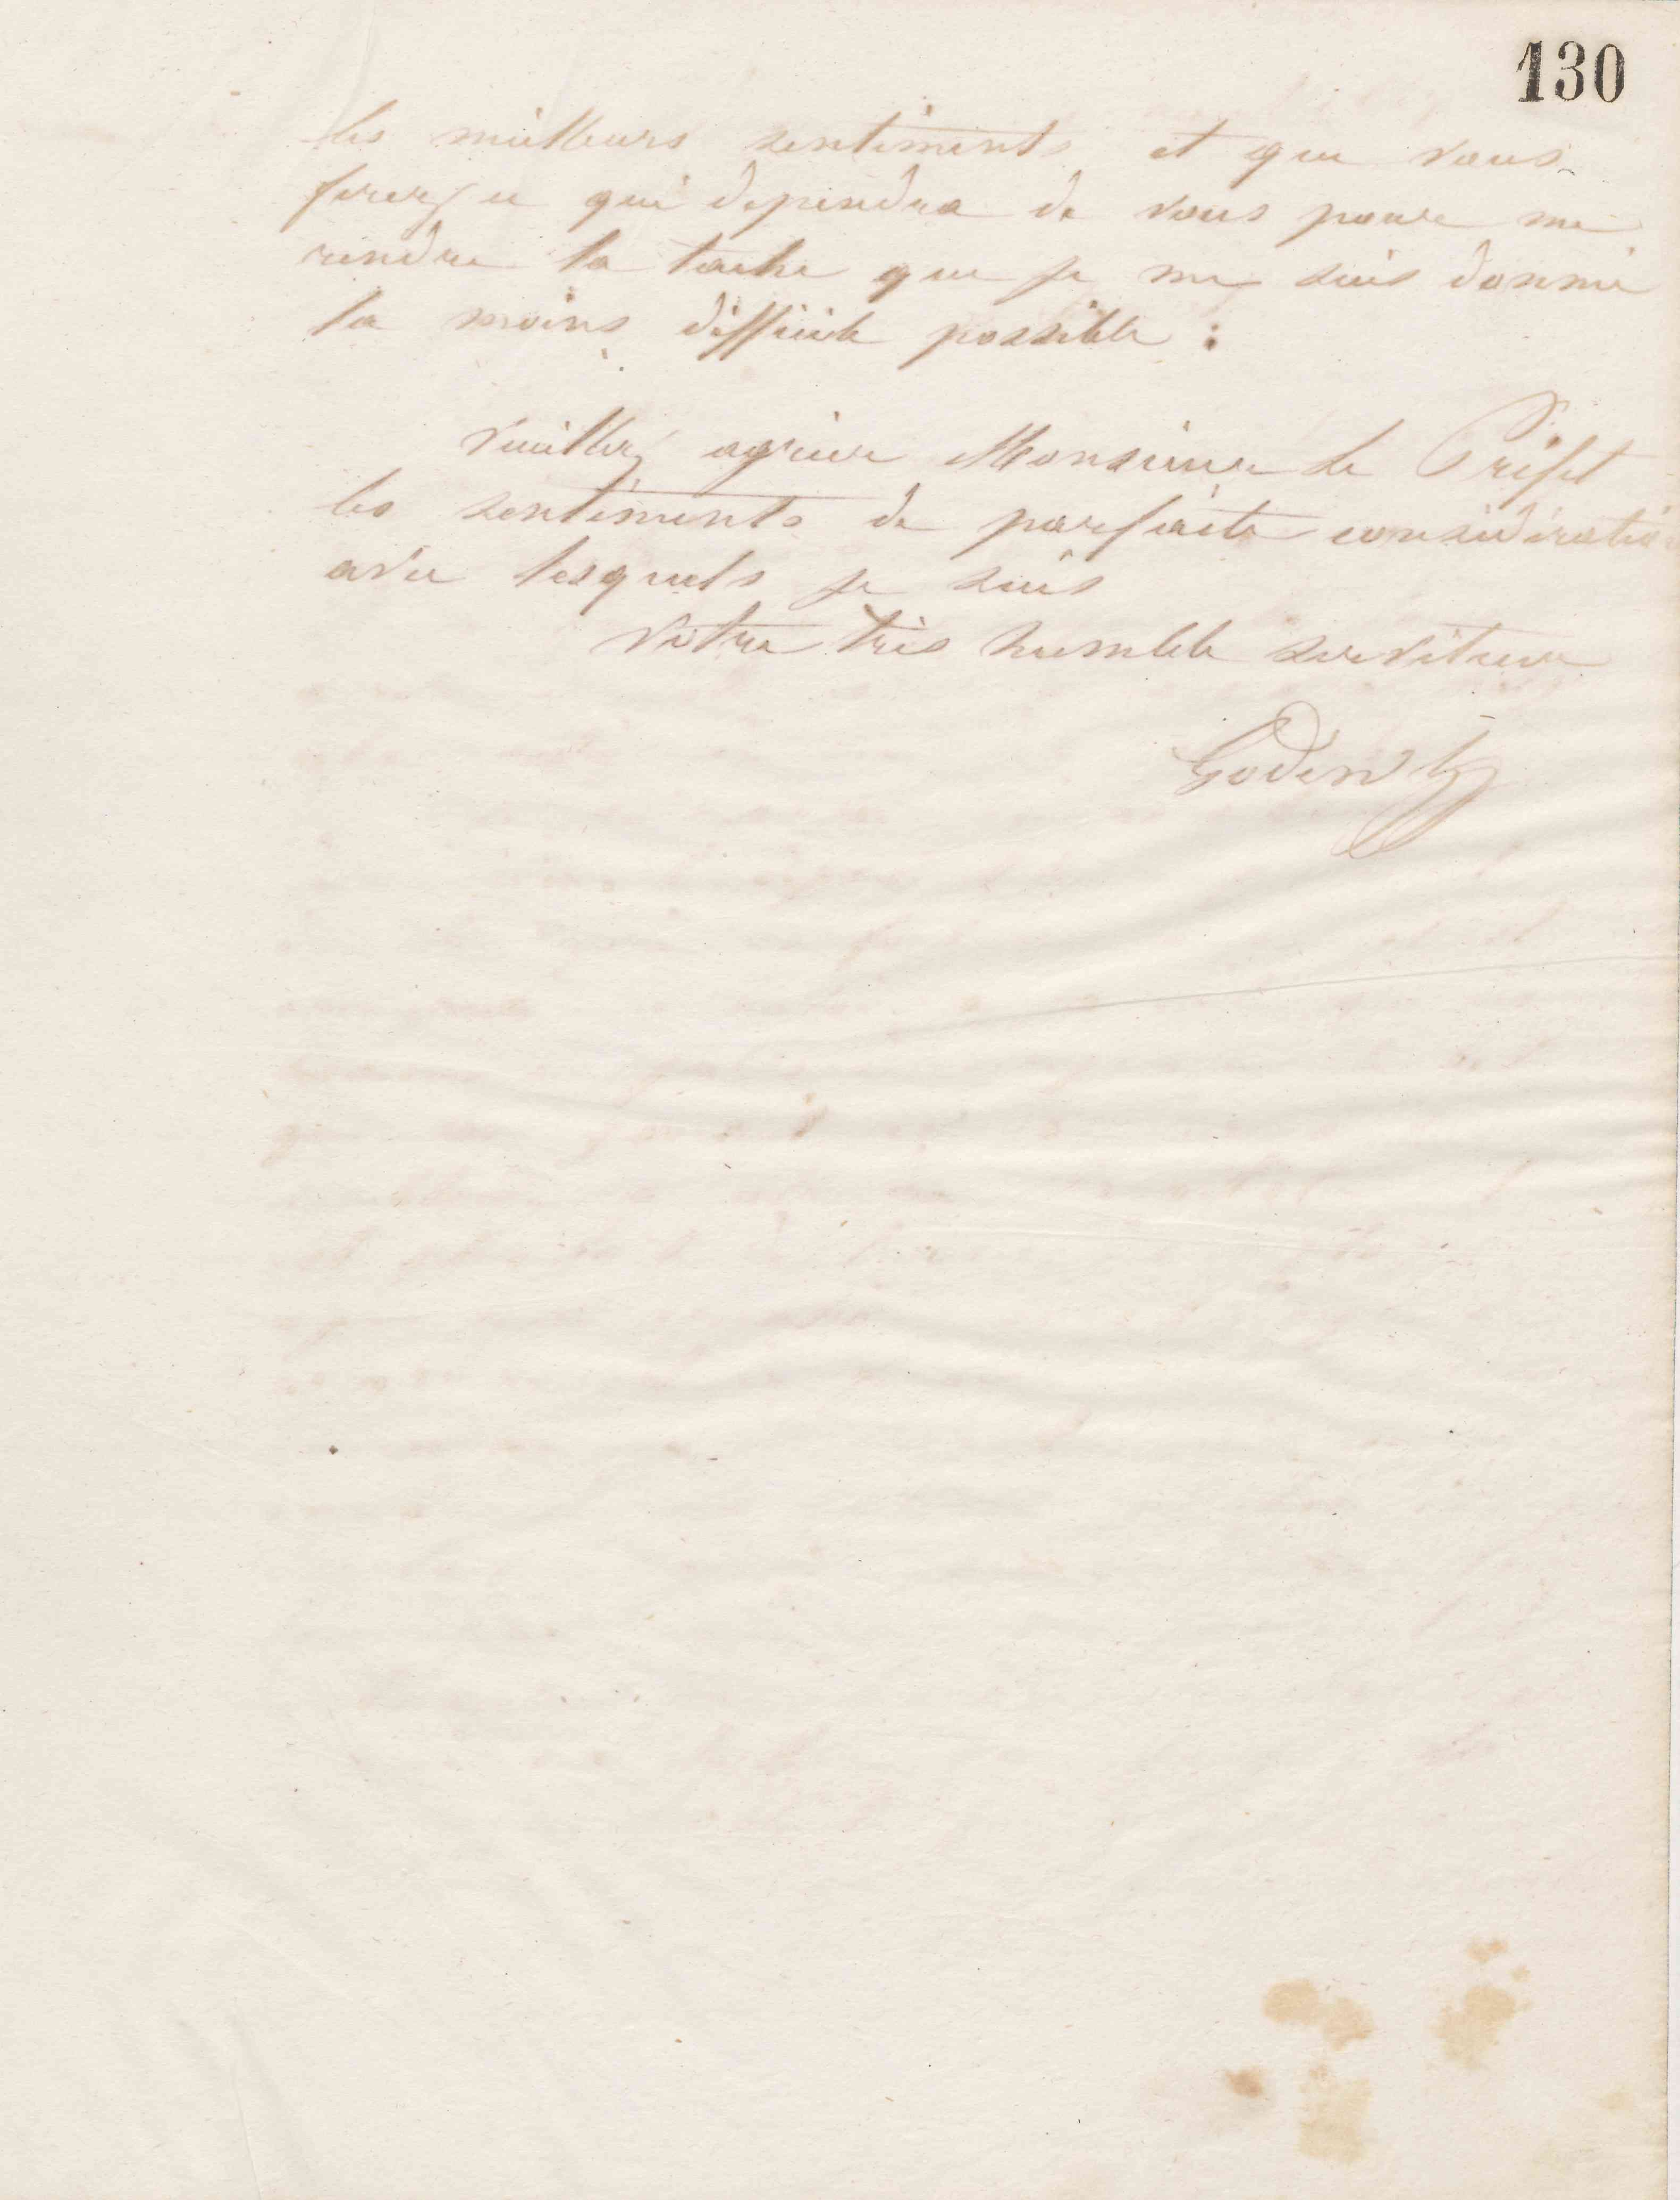 130
les meilleurs sentiments et que vous
ferez ce qui dependra de vous pour me
rendre la tache que je me suis donné
la moins difficile possible :
Veuillez agréer Monsieur le Préfet
les sentiments de parfaite considération
avec lesquels je suis
Votre très humble serviteur
Godin